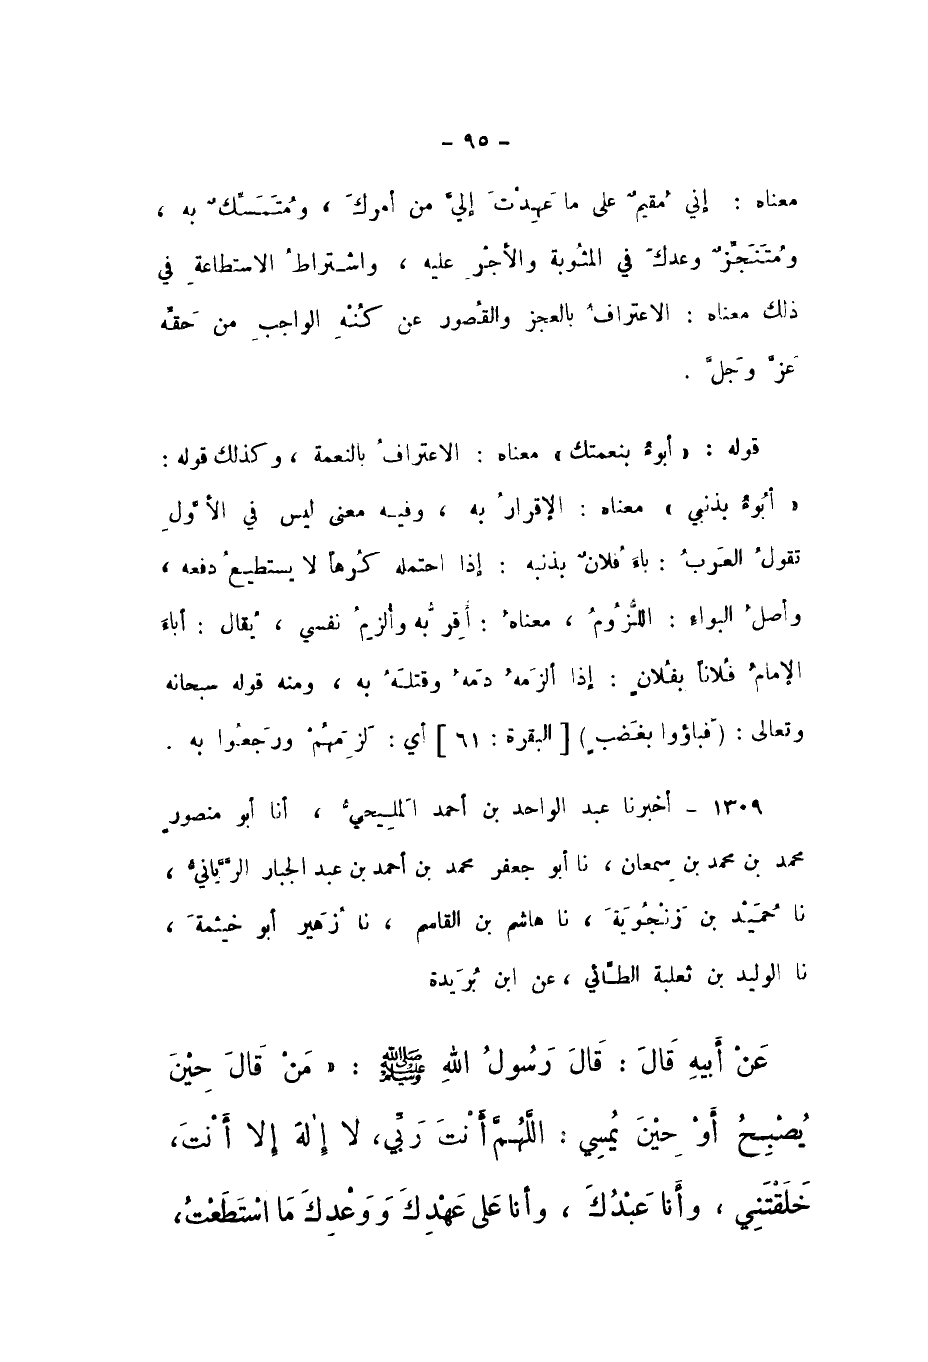 - ٩٥ -
معناه : إني مُقيمٌ على ما عَهِدْتَ إليَّ من أمرِكَ ، ومُتَمَسِّكٌ به ،
ومُتَنَجِّزٌ وعدكَ في المثُوبة والأجْرِ عليه ، واشتراطُ الاستطاعةِ في
ذلك معناه : الاعترافُ بالعجز والقُصور عن كُنْهِ الواجبِ من حَقِّه
عَزَّ وجَلَّ .
قوله : « أبوءُ بنعمتك » معناه : الاعترافُ بالنعمة ، وكذلك قوله :
« أبُوءُ بذنبي » معناه : الإقرارُ به ، وفيه معنى ليس في الأوَّلِ
تقولُ العَرَبُ : باءَ فُلانٌ بذنبه : إذا احتمله كُرهاً لا يستطيعُ دفعه ،
وأصلُ البواءِ : اللُّزُومُ ، معناهُ : أُقِرُّ به وأُلزِمُ نفسي ، يُقال : أباءَ
الإمامُ فُلاناً بفُلانٍ : إذا ألزَمهُ دمَهُ وقتلَهُ به ، ومنه قوله سبحانه
وتعالى : ( فَباؤوا بغَضَبٍ ) [ البقرة : ٦١ ] أي : لَزِمَهُمْ ورَجَعُوا به .
١٣٠٩ - أخبرنا عبد الواحد بن أحمد المَلِيحيُّ ، أنا أبو منصورٍ
محمد بن محمد بن سِمعان ، نا أبو جعفر محمد بن أحمد بن عبد الجبار الرَّيَّانيُّ ،
نا حُمَيْد بن زَنْجُويَةَ ، نا هاشم بن القاسم ، نا زُهَير أبو خيثمةَ ،
نا الوليد بن ثعلبة الطَّائي ، عن ابن بُرَيدة
عَنْ أَبِيهِ قَالَ : قَالَ رَسُولُ اللهِ ﷺ : « مَنْ قَالَ حِيْنَ
يُصْبِحُ أَوْ حِيْنَ يُمْسِي : اللَّهُمَّ أَنْتَ رَبِّي، لا إِلٰهَ إِلا أَنْتَ،
خَلَقْتَنِي ، وأَنا عَبْدُكَ ، وأنا عَلى عَهْدِكَ وَوَعْدِكَ مَا اسْتَطَعْتُ،